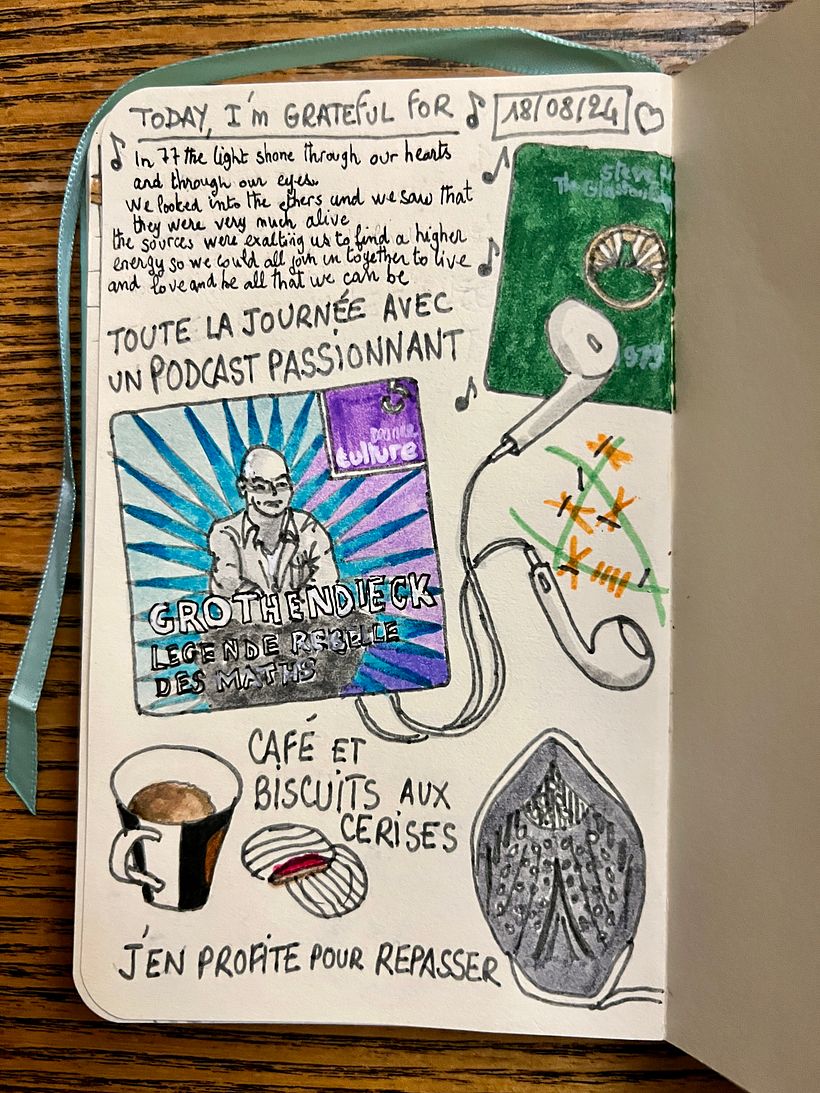 TODAY, I'm GRATEFUL FOR
18/08/24
In 77 the light shone through our hearts
and through our eyes.
we looked into the ethers and we saw that
they were very much alive
the sources were exalting us to find a higher
energy so we could all join in together to live
and love and be all that we can be
steve H
The Glastonbury
1977
TOUTE LA JOURNÉE AVEC
UN PODCAST PASSIONNANT
culture
GROTHENDIECK
LEGENDE REBELLE
DES MATHS
CAFÉ ET
BISCUITS AUX
CERISES
J'EN PROFITE POUR REPASSER